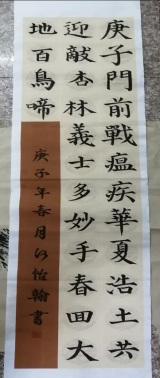 庚子門前戰瘟疾華夏浩土共
迎敵杏林義士多妙手春回大
地百鳥啼
庚子年春月怡翰書